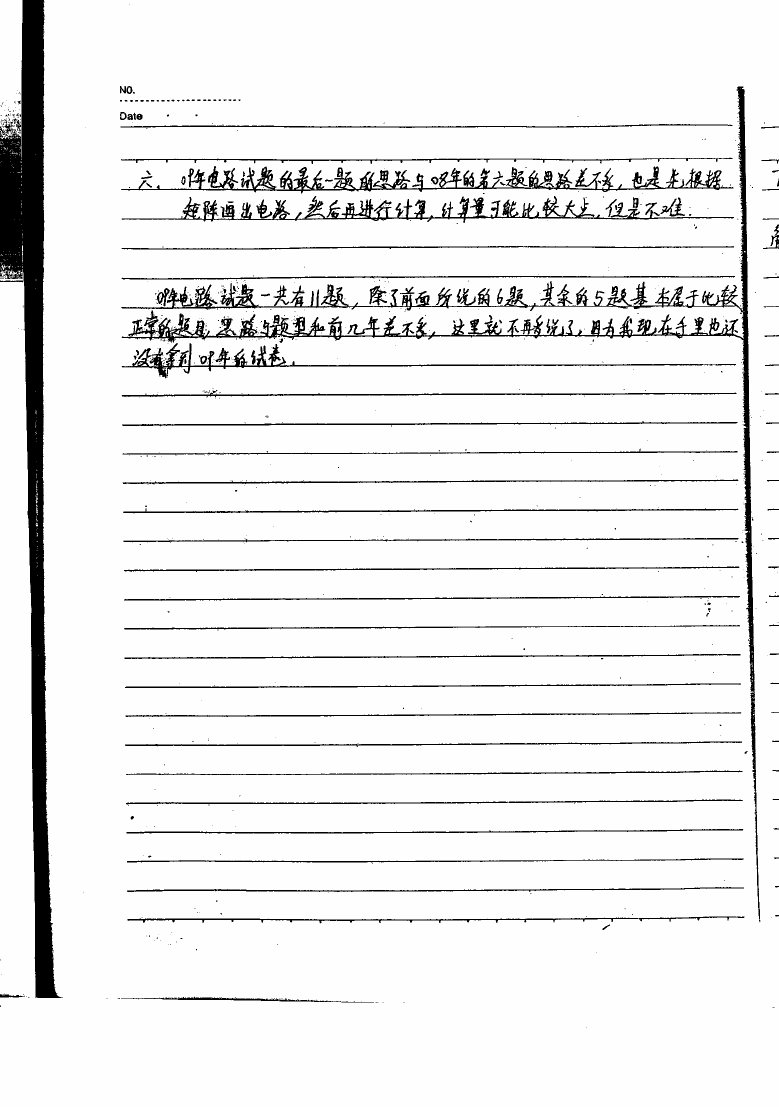 NO.
Date
六. 09年电路试题的最后一题的思路与08年的第六题的思路差不多, 也是先根据
矩阵画出电路, 然后再进行计算, 计算量可能比较大点, 但是不难.
09年电路试题一共有11题, 除了前面所说的6题, 其余的5题基本属于比较
正常的题目, 思路与题型和前几年差不多, 这里就不再多说了, 因为我现在手里也还
没有拿到09年的试卷.